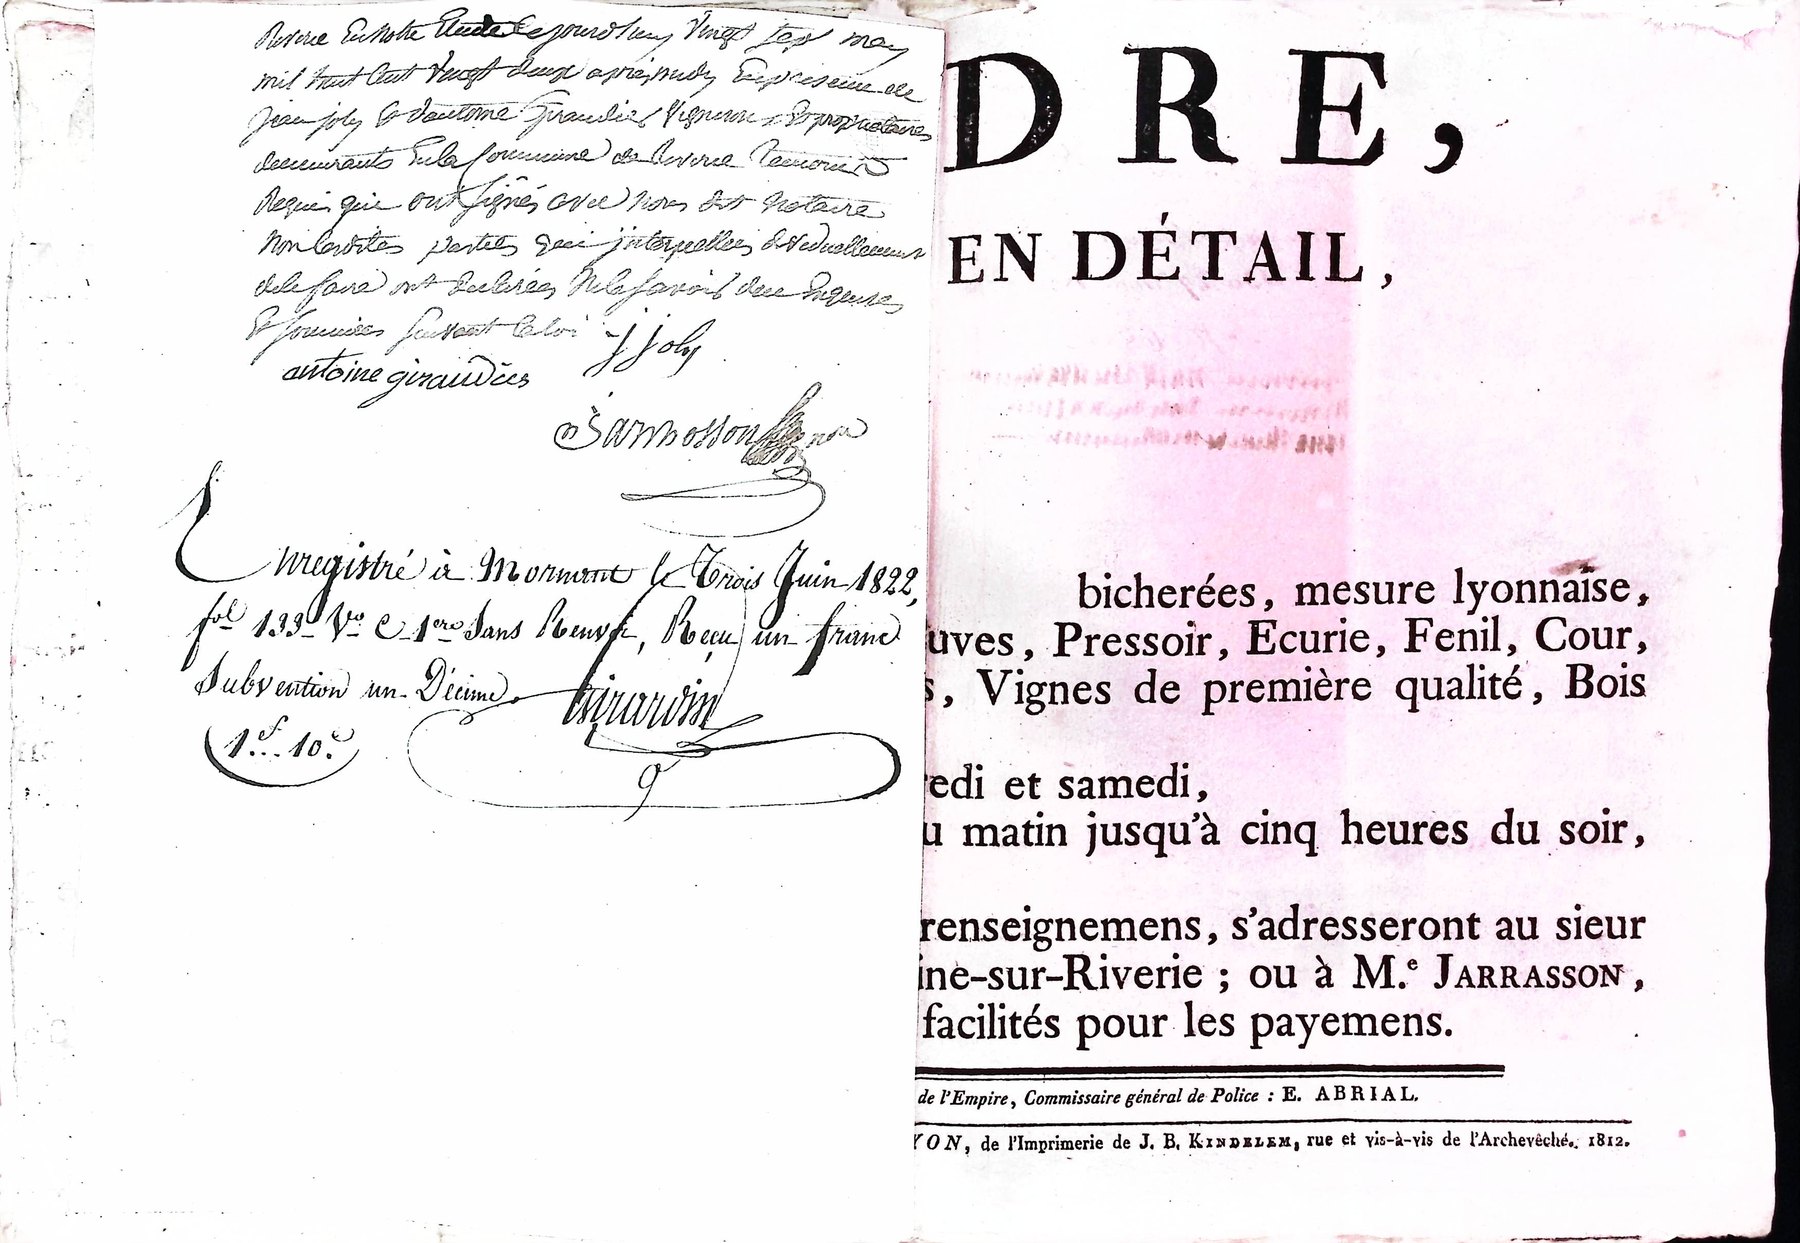 Riverie En notre Etude Cejourdhuy Vingt Sept may
mil huit Cent Vingt deux après midy En presence de
jean joly Et d'antoine Giraudier Vignerons Et propriétaires
demeurants En la Commune de Riverie Temoins
Requis qui ont signés avec nous dit notaire
Non lesdites parties qui interpellées individuellement
de le faire ont declarées Ne le savoir de ce Enquises
Et Sommées Suivant la loi
j joly
antoine giraudier
Jarrosson
Enregistré à Mornant le Trois Juin 1822,
fol 133 Vo C 1ere Sans Renvoi, Reçu un franc
Subvention un Décime
Girardin
1f 10c
DRE,
EN DÉTAIL,
bicherées, mesure lyonnaise,
uves, Pressoir, Ecurie, Fenil, Cour,
s, Vignes de première qualité, Bois
redi et samedi,
u matin jusqu'à cinq heures du soir,
renseignemens, s'adresseront au sieur
ine-sur-Riverie ; ou à M.e JARRASSON,
facilités pour les payemens.
de l'Empire, Commissaire général de Police : E. ABRIAL.
YON, de l'Imprimerie de J. B. KINDELEM, rue et vis-à-vis de l'Archevêché. 1812.